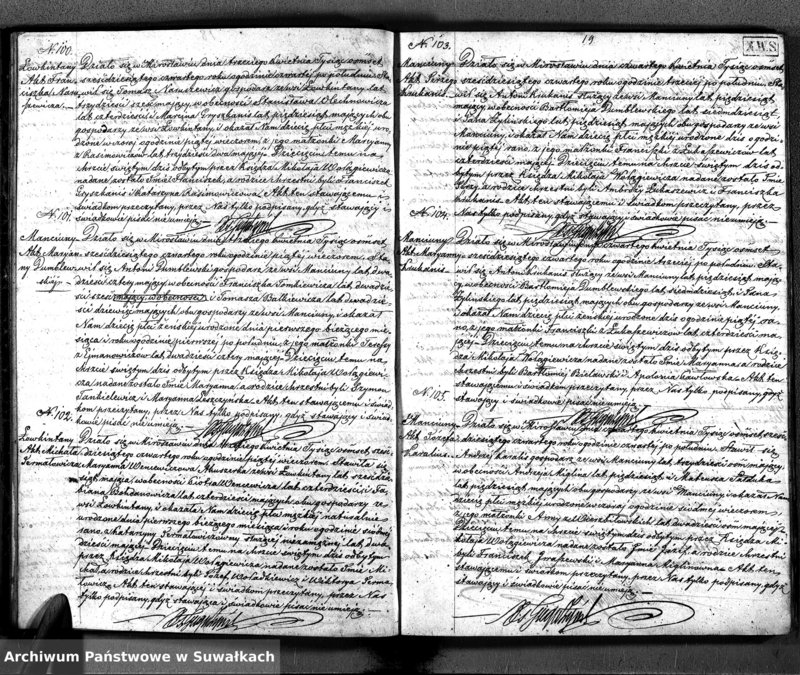 N. 100.
Działo się w Mirosławiu dnia trzeciego kwietnia Tysiąc ośmset
sześćdziesiątego czwartego roku o godzinie czwartej po południu. Sta
wił się Tomasz
trzydzieści sześć mający, w obecności Stanisława
lat czterdzieści i Marcina lat pięćdziesiąt mających obu
gospodarzy ze wsi i okazał Nam dziecię płci męzkiej uro
dzone wczoraj o godzinie piątej wieczorem z jego małżonki Maryanny
z Kazimowiczów lat trzydzieści dwa mającej. Dziecięciu temu na
chrzcie świętym odbytym przez Księdza Mikołaja Wołągiewicza
nadane zostało Imię Franciszek, a rodzice chrzestni byli Franciszek
i Katarzyna Kazimowiczowa. Akt ten stawającemu i
świadkom przeczytany, przez Nas tylko podpisany, gdyż stawający i
świadkowie pisać nie umieją.
N. 101.
Manciuny
Akt Maryan
ny Dumblew
skiej.
Działo się w Mirosławiu dnia trzeciego kwietnia Tysiąc ośmset
sześćdziesiątego czwartego roku o godzinie piątej wieczorem. Sta
wił się Antoni Dumblewski gospodarz ze wsi Manciuny lat dwa
dzieścia cztery mający w obecności Franciszka Tomkiewicza lat dwadzie
ścia sześć mający w obecności i Tomasza Balkiewicza lat dwadzie
ścia dziewięć mających obu gospodarzy ze wsi Manciuny i okazał
Nam dziecię płci żeńskiej urodzone dnia pierwszego bieżącego mie
siąca i roku o godzinie pierwszej po południu, z jego małżonki Teresy
z lat dwadzieścia cztery mającej. Dziecięciu temu na
chrzcie świętym dziś odbytym przez Księdza Mikołaja Wołągiewi
cza, nadane zostało Imię Maryanna, a rodzice chrzestni byli Szymon
Jankielewicz i Maryanna Leszczyńska. Akt ten stawającemu i świad
kom przeczytany, przez Nas tylko podpisany, gdyż stawający i świad
kowie pisać nie umieją.
N. 102.
Akt Michała
Działo się w Mirosławiu dnia trzeciego kwietnia Tysiąc ośmset sześć
dziesiątego czwartego roku o godzinie piątej wieczorem. Stawiła się
Maryanna Akuszerka ze wsi lat sześćdzie
siąt mająca, w obecności Piotra lat czterdzieści i Fa
biana Bohdanowicza lat czterdzieści mających obu gospodarzy ze
wsi i okazała Nam dziecię płci męzkiej naturalnie
urodzone dnia pierwszego bieżącego miesiąca i roku o godzinie
z rana, z Katarzyny służącej niezamężnej, lat dwa
dzieścia mającej. Dziecięciu temu na chrzcie świętym dziś odbytym
przez Księdza Mikołaja Wołągiewicza, nadane zostało Imię Mi
chał a rodzice chrzestni byli Józef Wołodkiewicz i Wiktorya
Akt ten stawającej i świadkom przeczytany, przez Nas
tylko podpisany, gdyż stawająca i świadkowie pisać nie umieją.
19
N. 103.
Manciuny
Akt Jerzego
Działo się w Mirosławiu dnia czwartego kwietnia Tysiąc ośmset
sześćdziesiątego czwartego roku o godzinie trzeciej po południu. Sta
wił się Antoni służący ze wsi Manciuny lat pięćdziesiąt
mający w obecności Bartłomieja Dumblewskiego lat siedmdziesiąt
i Jana Żylińskiego lat pięćdziesiąt mających obu gospodarzy ze wsi
Manciuny, i okazał Nam dziecię płci męzkiej urodzone dziś o godzi
nie piątej rano, z jego małżonki Franciszki z Łukaszewiczów lat
czterdzieści mającej. Dziecięciu temu na chrzcie świętym dziś od
bytym przez Księdza Mikołaja Wołągiewicza nadane zostało Imię
Jerzy, a rodzice chrzestni byli Ambroży Łukaszewicz i Franciszka
Akt ten stawającemu i świadkom przeczytany, przez
Nas tylko podpisany, gdyż stawający i świadkowie pisać nie umieją.
N. 104.
Manciuny
Akt Maryanny
Działo się w Mirosławiu dnia czwartego kwietnia Tysiąc ośmset
sześćdziesiątego czwartego roku o godzinie trzeciej po południu. Sta
wił się Antoni służący ze wsi Manciuny lat pięćdziesiąt mają
cy w obecności Bartłomieja Dumblewskiego lat siedmdziesiąt i Jana
Żylińskiego lat pięćdziesiąt mających obu gospodarzy ze wsi Manciuny,
i okazał Nam dziecię płci żeńskiej urodzone dziś o godzinie piątej ra
no, z jego małżonki Franciszki z Łukaszewiczów lat czterdzieści ma
jącej. Dziecięciu temu na chrzcie świętym dziś odbytym przez Księ
dza Mikołaja Wołągiewicza nadane zostało Imię Maryanna a rodzice
chrzestni byli Bartłomiej Bielawski i Apolonia Akt ten
stawającemu i świadkom przeczytany, przez Nas tylko podpisany, gdyż
stawający i świadkowie pisać nie umieją.
N. 105.
Manciuny
Akt Józefa
Działo się w Mirosławiu dnia czwartego kwietnia Tysiąc ośmset sześć
dziesiątego czwartego roku o godzinie czwartej po południu. Stawił się
Andrzej gospodarz ze wsi Manciuny lat trzydzieści ośm mający,
w obecności Andrzeja Miglina lat pięćdziesiąt i Mateusza
lat pięćdziesiąt mających obu gospodarzy ze wsi Manciuny i okazał Nam
dziecię płci męzkiej urodzone wczoraj o godzinie siódmej wieczorem
z jego małżonki Anny z lat dwadzieścia ośm mającej.
Dziecięciu temu na chrzcie świętym dziś odbytym przez Księdza Mi
kołaja Wołągiewicza, nadane zostało Imię Józef, a rodzice chrzestni
byli Franciszek i Maryanna Miglinowa. Akt ten
stawającemu i świadkom przeczytany, przez Nas tylko podpisany, gdyż
stawający i świadkowie pisać nie umieją.
Archiwum Państwowe w Suwałkach